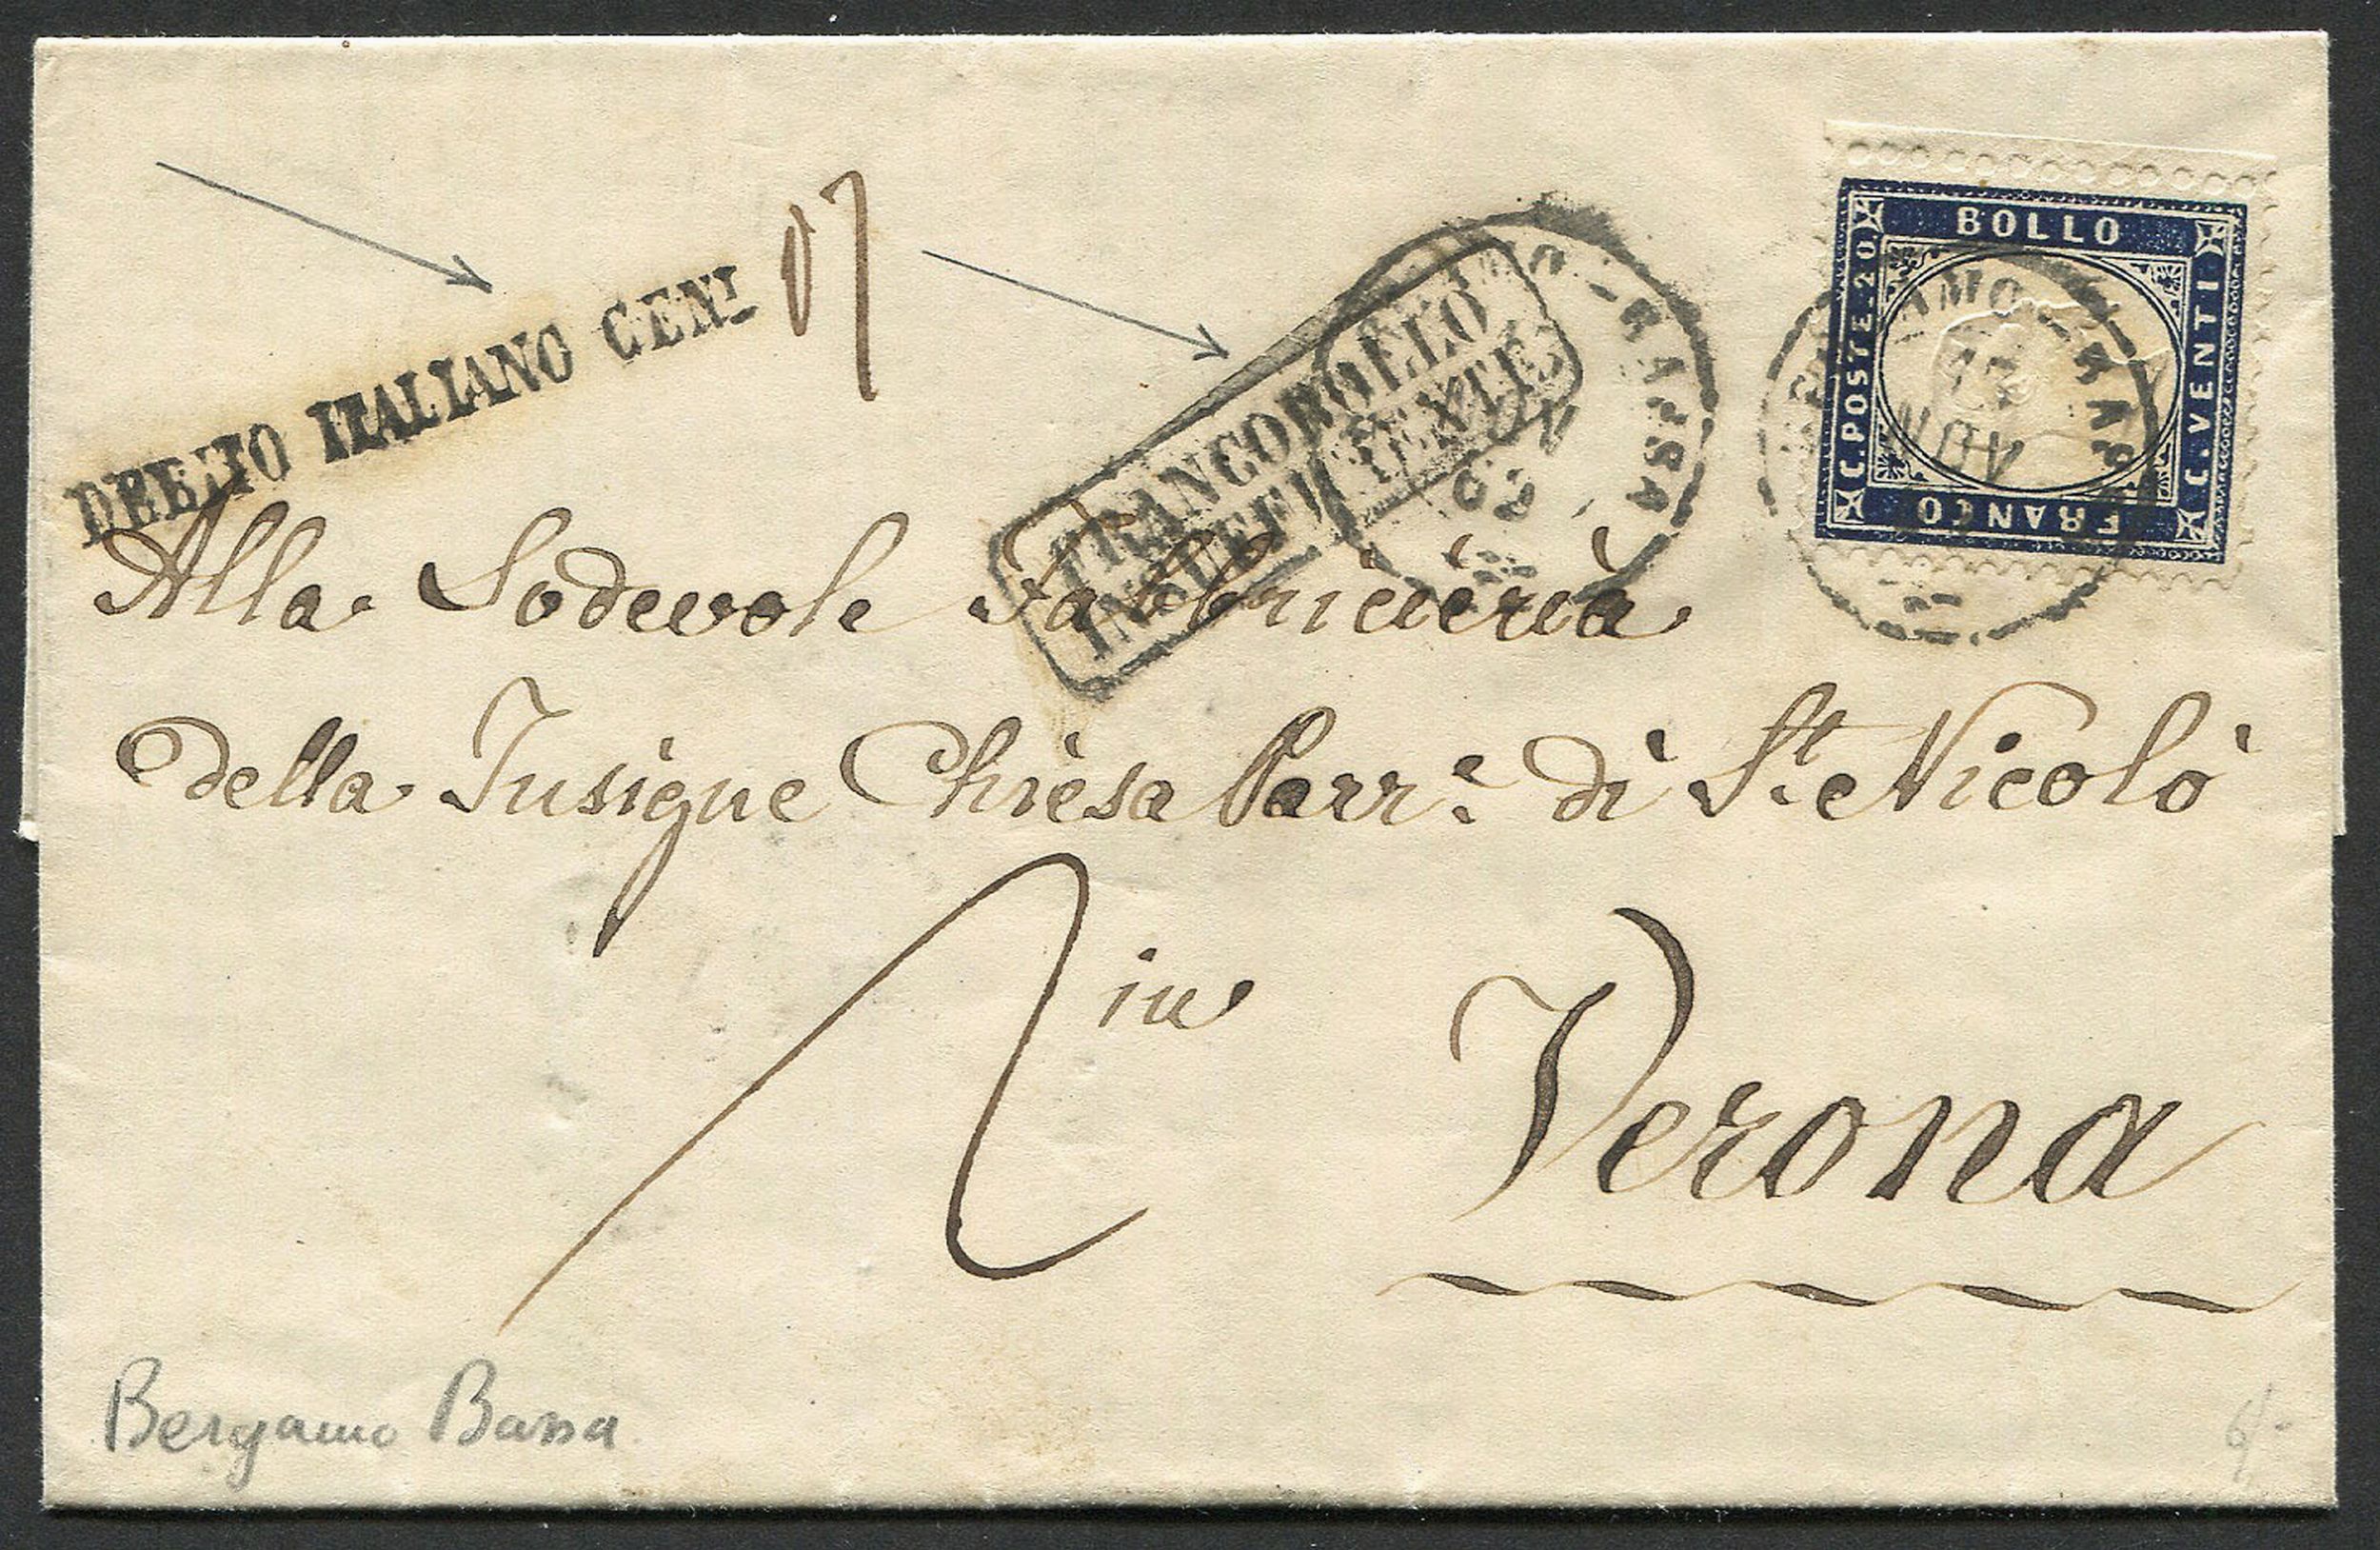 DEBITO ITALIANO CENT
FRANCOBOLLO
INSUFFICIENTE
BASSA
62
BOLLO
C. POSTE. 20
C. VENTI
FRANCO
NOV
BASSA
Alla Lodevole Fabbricieria
della Insigne Chiesa Parr.e di S.t Nicolò
in
Verona
Bergamo Bassa